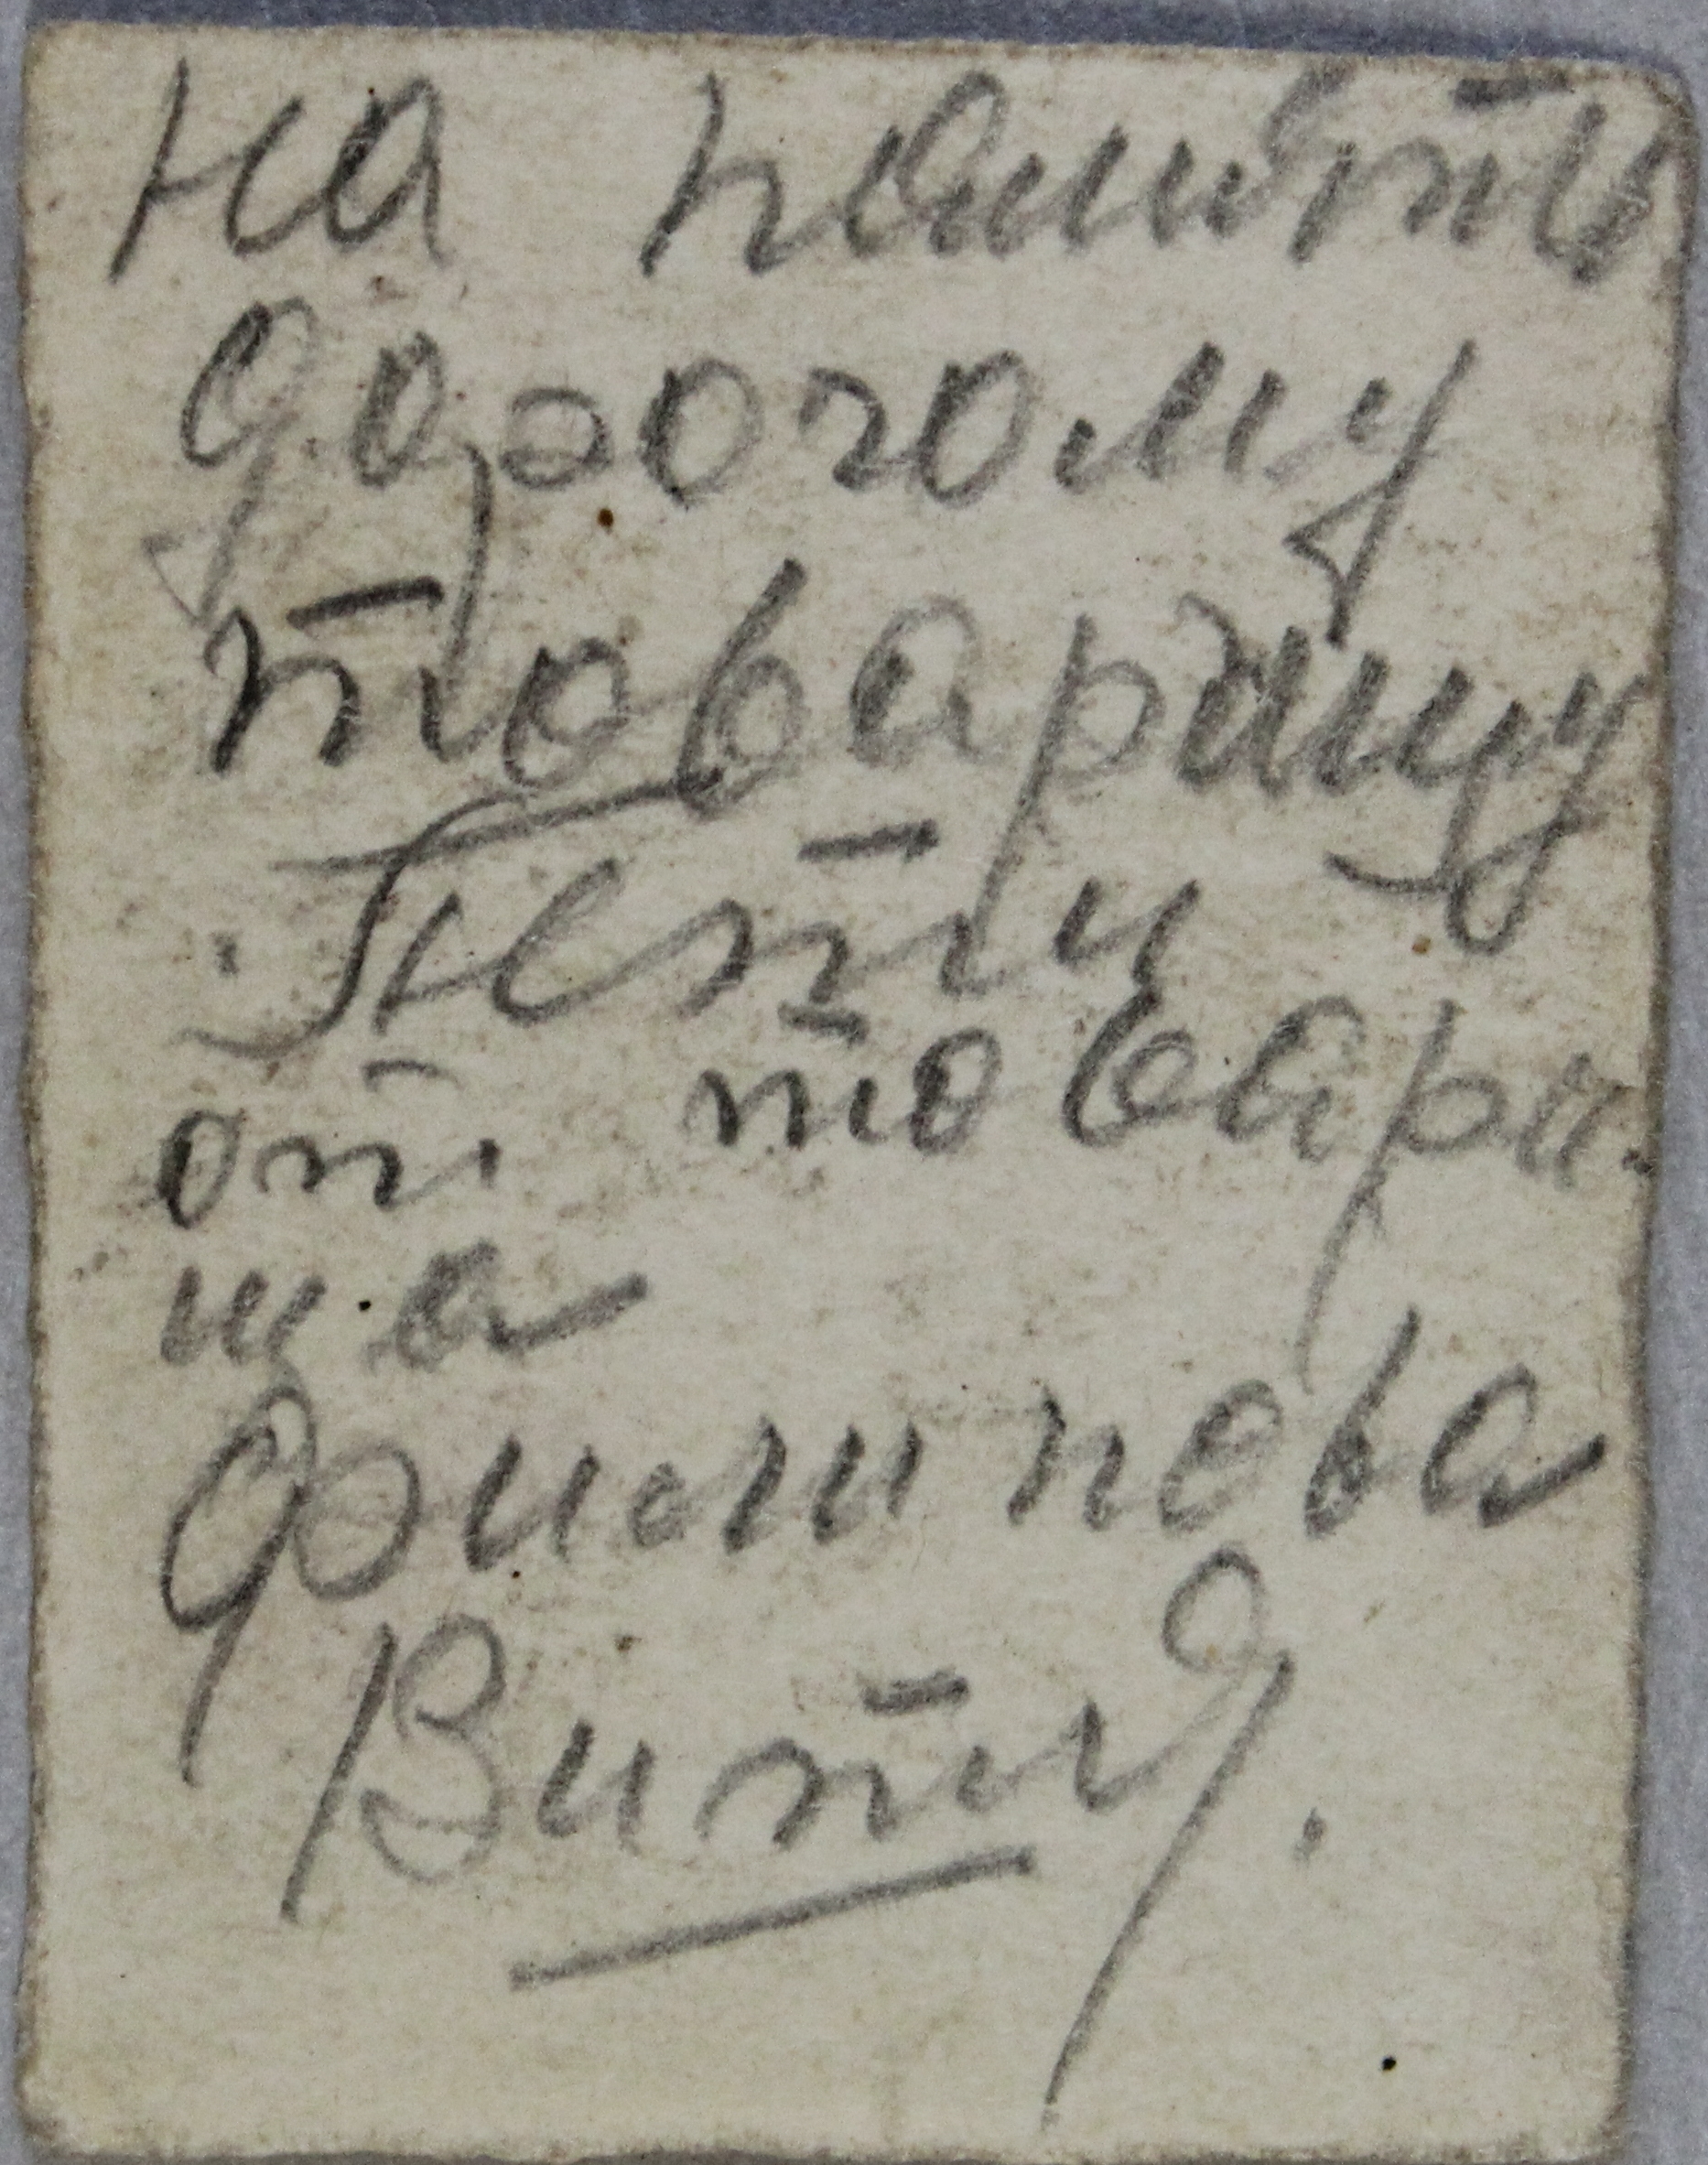 на память
дорогому
товарищу
Пети
от товари-
ща
Филипова
Вити.